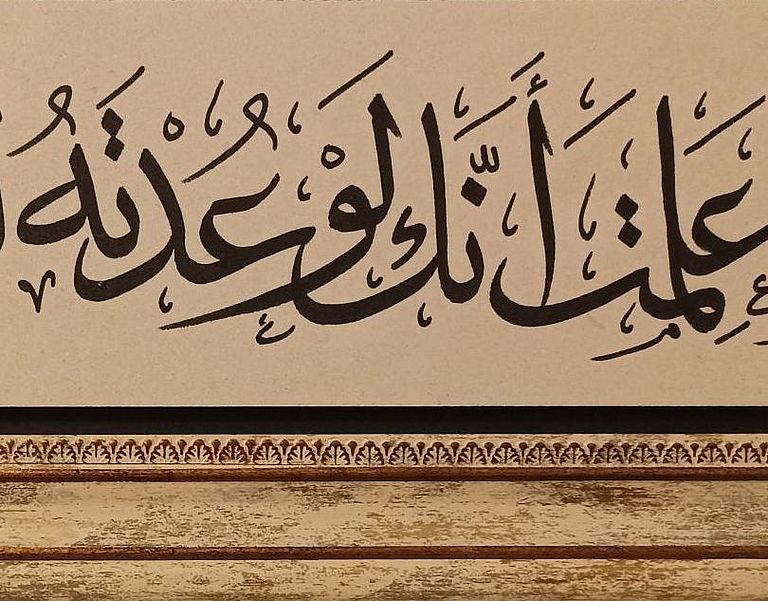 علمت أنّك لوْ عُدْتَهُ